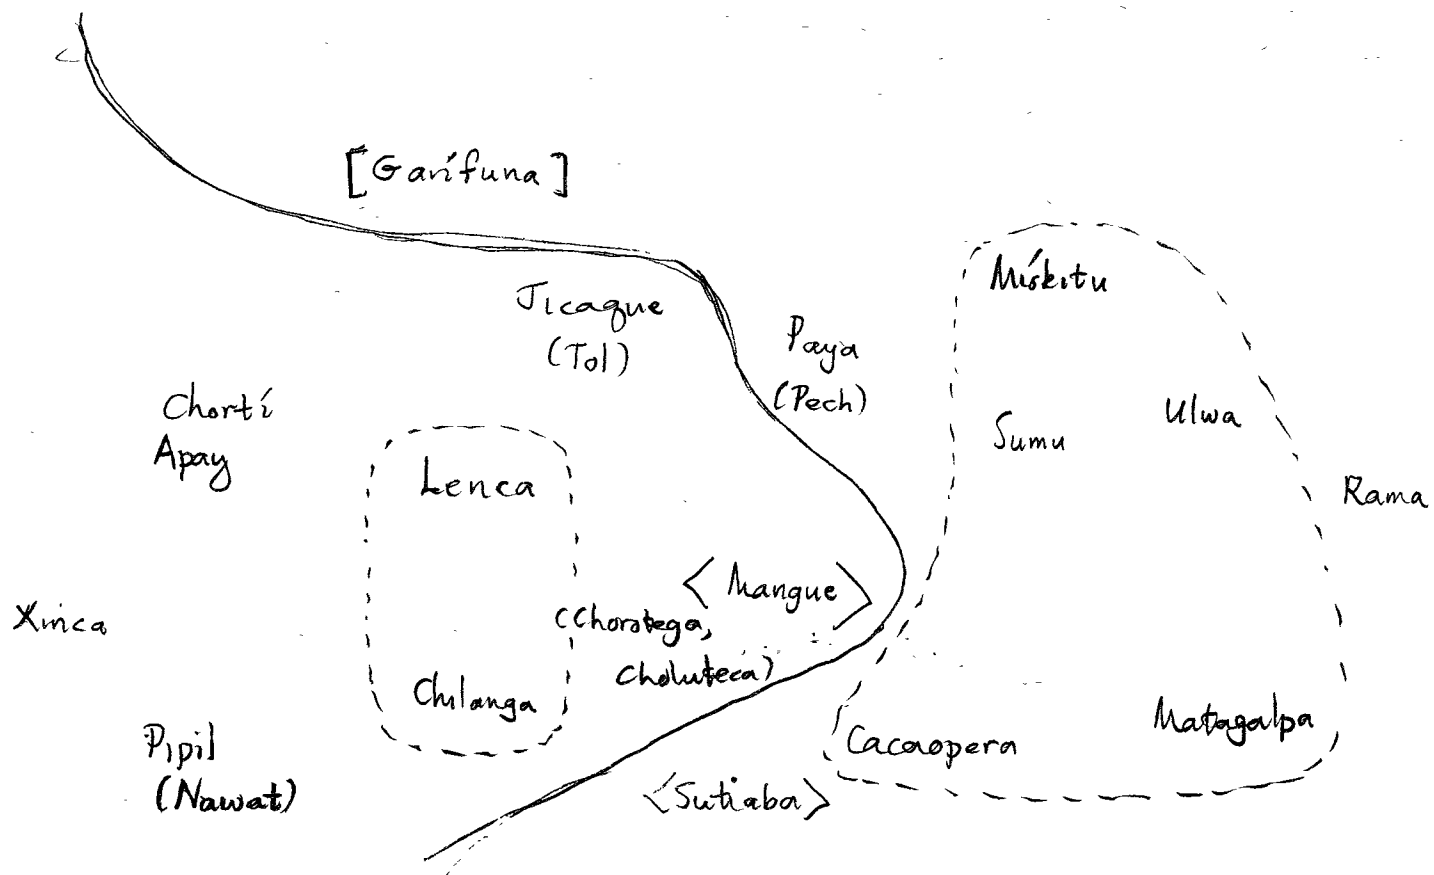 [Garífuna]
Jicaque
(Tol)
Paya
(Pech)
Mískitu
Chortí
Apay
Lenca
Sumu
Ulwa
Rama
<Mangue>
(Chorotega,
Choluteca)
Xinca
Chilanga
Pipil
(Nawat)
<Sutiaba>
Cacaopera
Matagalpa